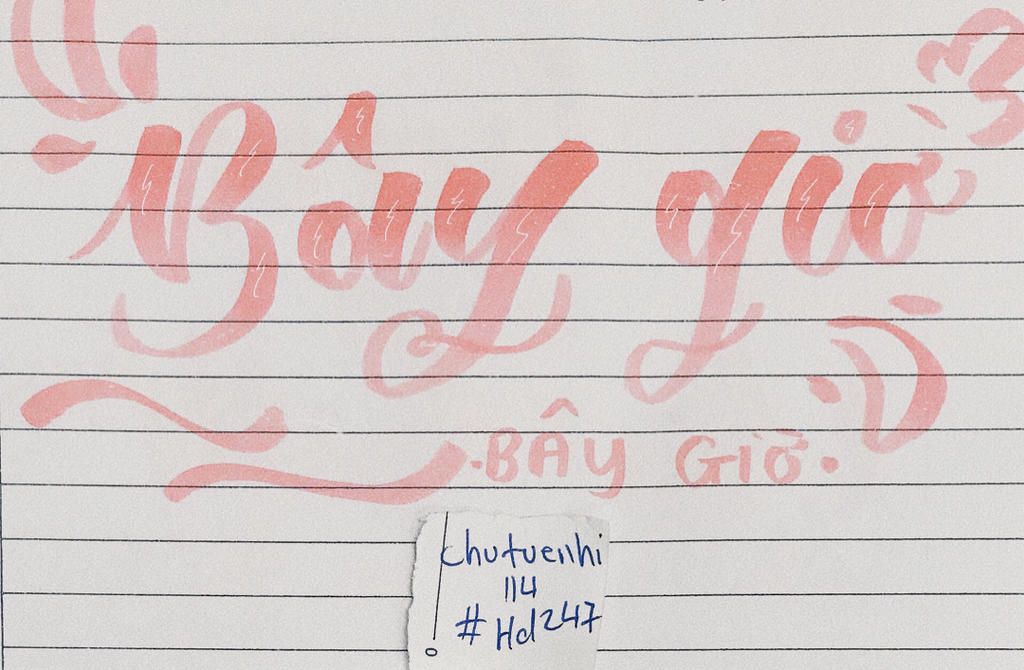 Bây giờ
·BÂY GIờ·
chutuenhi
114
#Hd247